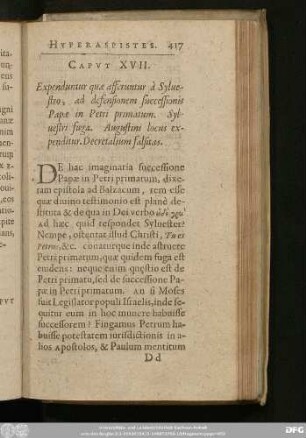 HYPERASPISTES. 417
CAPVT XVII.
Expenduntur quæ afferuntur à Sylue-
stro, ad defensionem successionis
Papæ in Petri primatum. Syl-
uestri fuga. Augustini locus ex-
penditur. Decretalium falsitas.
DE hac imaginaria successione
Papæ in Petri primatum, dixe-
ram epistola ad Balzacum, rem esse
quæ diuino testimonio est planè de-
stituta & de qua in Dei verbo
ad hæc quid respondet Syluester?
Nempe, ostentat illud Christi, Tu es
Petrus, &c. conaturque inde astruere
Petri primatum, quæ quidem fuga est
endens: neque enim quęstio est de
Petri primatu, sed de successione Pa-
pæ in Petri primatum. AN si Moses
fuit Legislator populi Israelis, inde se-
quitur eum in hoc munere habuisse
successorem? Fingamus Petrum ha-
buisse potestatem iurisdictionis in a-
lios Apostolos, & Paulum meritum
D d